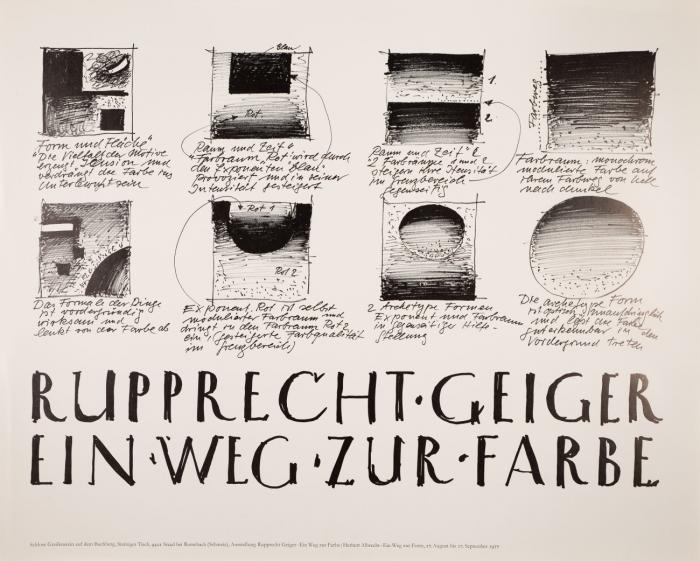 Blau
1
2
Rot
Farbweg
"Form und Fläche"
"Die Vielfalt der Motive
erzeugt Illusion und
verdrängt die Farbe ins
Unterbewußtsein
Raum und Zeit 6
"Farbraum, Rot" wird durch
den Exponenten "Blau"
provoziert und in seiner
Intensität gesteigert
Raum und Zeit 6
2 Farbränge 1 und 2
steigern ihre Itensität
im Grenzbereich
gegenseitig
Farbraum, monochrom
modulierte Farbe auf
ihrem Farbweg von hell
nach dunkel
Rot 1
Rot 2
Das Formale der Dinge
ist vordergründig
wirksam und
lenkt von der Farbe ab
Exponent, Rot ist selbst
modulierter Farbraum und
dringt in den Farbraum Rot 2
ein (gesteigerte Farbqualität
im Grenzbereich)
2 Archetype Formen
Exponent und Farbraum
in gegenseitiger Hilfe-
stellung
Die archetype Form
ist optisch unaufdringlich
und läßt die Farbe
in den
Vordergrund treten
RUPPRECHT·GEIGER
EIN·WEG·ZUR·FARBE
Schloss Greifenstein auf dem Buchberg, Steiniger Tisch, 9422 Staad bei Rorschach (Schweiz), Ausstellung Rupprecht Geiger · Ein Weg zur Farbe / Herbert Albrecht · Ein Weg zur Form, 27. August bis 27. September 1977